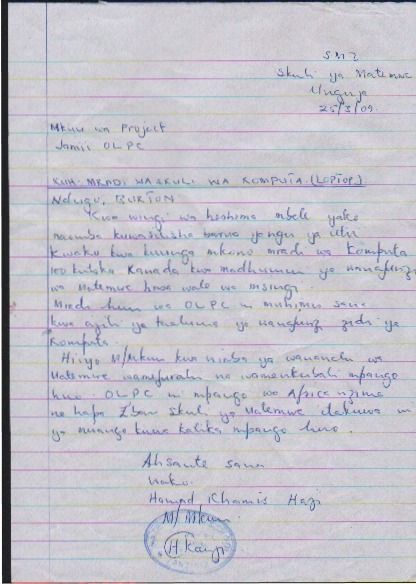 SMZ
Skuli ya Matemwe
Unguja
25/3/09.
Mkuu wa Project
Jamii OLPC
KUH: MRADI WA SKULI WA KOMPUTA (LOPTOP)
Ndugu, BURTON
Kwa wingi wa heshima mbele yako
naomba kuwasilisha barua yangu ya utii
kwako kwa kuunga mkono mradi wa Komputa
100 kutoka Kanada kwa madhumuni ya wanafunzi
wa Matemwe hawa wale wa msingi
Mradi huu wa OLPC ni muhimu sana
kwa ajili ya taaluma ya wanafunzi zidi ya
Komputa.
Hivyo M/Mkuu kwa niaba ya wananchi wa
Matemwe wamefurahi na wamekubali mpango
huo. OLPC ni mpango wa Africa nzima
na hapa Zbar Skuli ya Matemwe itakuwa ni
ya mwango katika mpango huo.
Ahsante sana
Wako.
Hamad Khamis Haji
M/Mkuu.